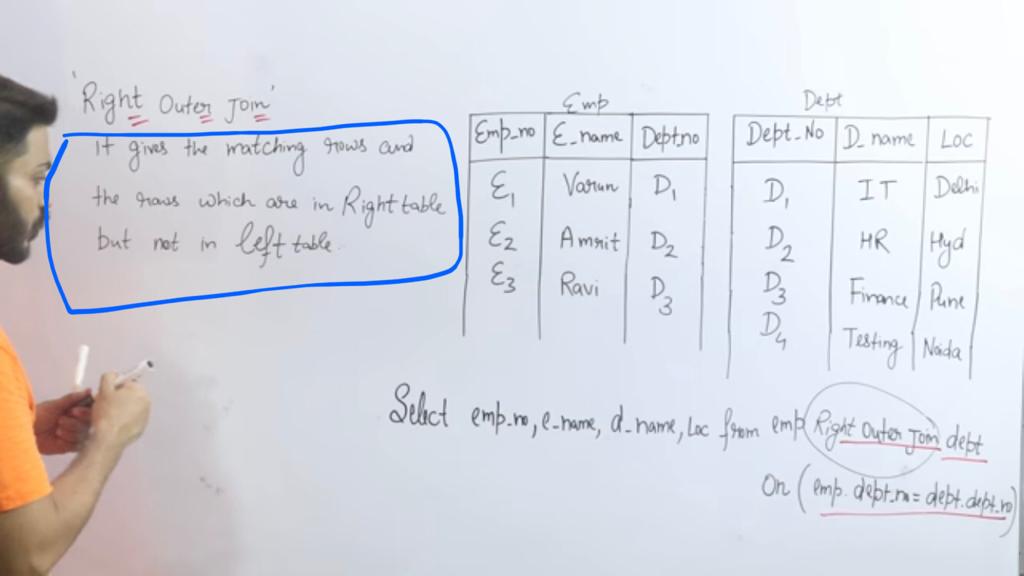 'Right Outer Join'
It gives the matching rows and
the rows which are in Right table
but not in left table.
Emp
Emp_no E_name Dept_no
E1 Varun D1
E2 Amrit D2
E3 Ravi D3
Dept
Dept_No D_name Loc
D1 IT Delhi
D2 HR Hyd
D3 Finance Pune
D4 Testing Noida
Select emp_no, e_name, d_name, Loc from emp Right Outer Join dept
On (emp.dept_no = dept.dept_no)